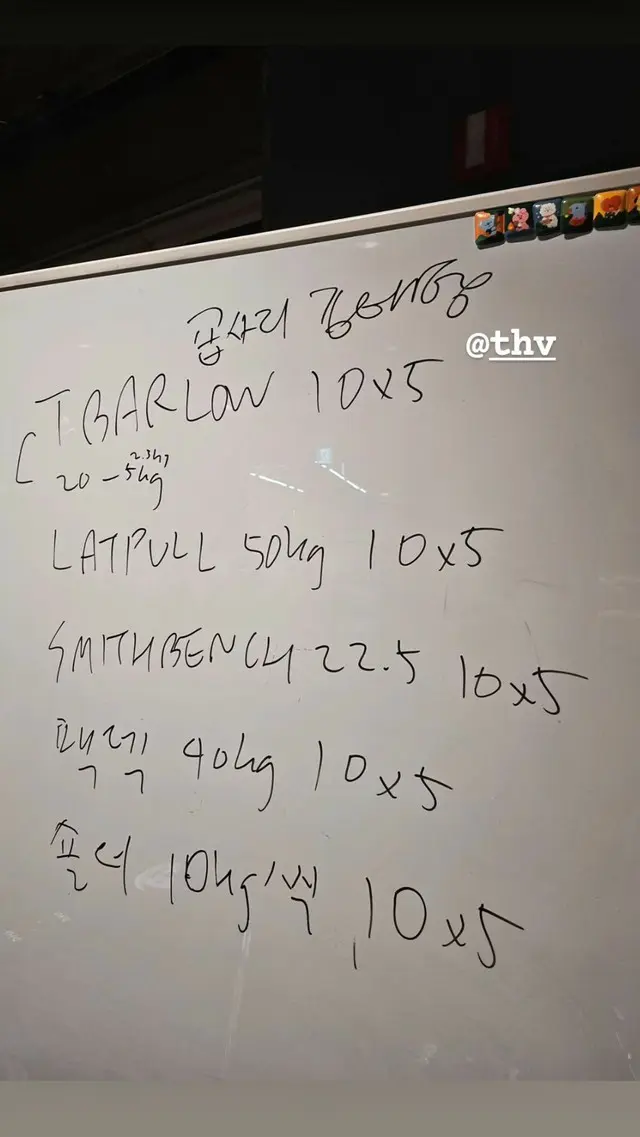 곱사리 김태형
@thv
TBARLOW 10x5
20-5kg 2.5kg
LATPULL 50kg 10x5
SMITHBENCH 22.5 10x5
팩덱 40kg 10x5
숄더 10kg/씩 10x5